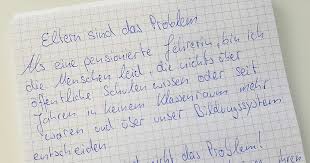 Eltern sind das Problem
Als eine pensionierte Lehrerin, bin ich
die Menschen leid, die nichts über
öffentliche Schulen wissen oder seit
Jahren in keinem Klassenraum mehr
waren und über unser Bildungssystem
entscheiden.
nicht das Problem!